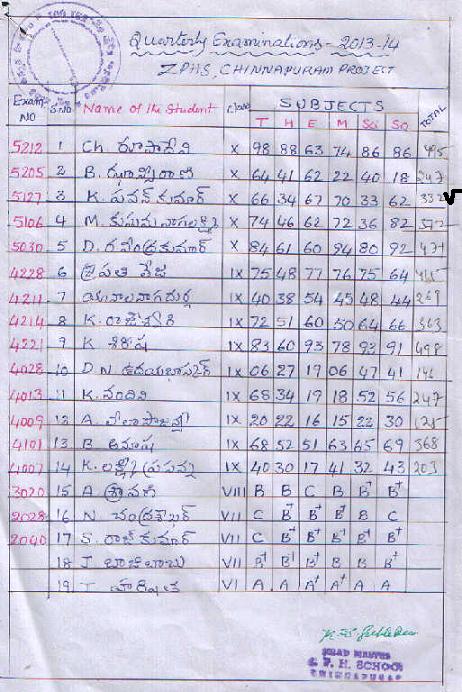 Quarterly Examinations - 2013-14
ZPHS, CHINNAPURAM PROJECT
Exam NO S.No Name of the Student class SUBJECTS TOTAL
T H E M Sci So
5212 1 Ch. రూపాదేవి X 98 88 63 74 86 86 495
5205 2 B. X 64 41 62 22 40 18 247
5127 3 K. పవన్ కుమార్ X 66 34 67 70 33 62 332
5106 4 M. కుసుమ నాగలక్ష్మి X 74 46 62 72 36 82 372
5030 5 D. రవీంద్రకుమార్ X 84 61 60 94 80 92 471
4228 6 IX 75 48 77 76 75 64 415
4211 7 IX 40 38 54 45 48 44 269
4214 8 K. రాజేశ్వరి IX 72 51 60 50 64 66 363
4221 9 K. శిరీష IX 83 60 93 78 93 91 498
4028 10 D.N. ఉదయభాస్కర్ IX 06 27 19 06 47 41 146
4013 11 K. నందిని IX 68 34 19 18 52 56 247
4009 12 A. IX 20 22 16 15 22 30 125
4101 13 B. అనూష IX 68 52 51 63 65 69 368
4007 14 K. లక్ష్మీ ప్రసన్న IX 40 30 17 41 32 43 203
3020 15 A. శ్రావణి VIII B B C B B+ B+
2028 16 N. చంద్రశేఖర్ VII C B+ B+ B+ B C
2040 17 S. రాజ్ కుమార్ VII C B+ B+ B+ B+ B+
18 J. బాజిబాబు VII B+ B+ B B B B+
19 T. హారిషిత VI A A A+ A+ A A
HEAD MASTER
Z. P. H. SCHOOL
CHINNAPURAM